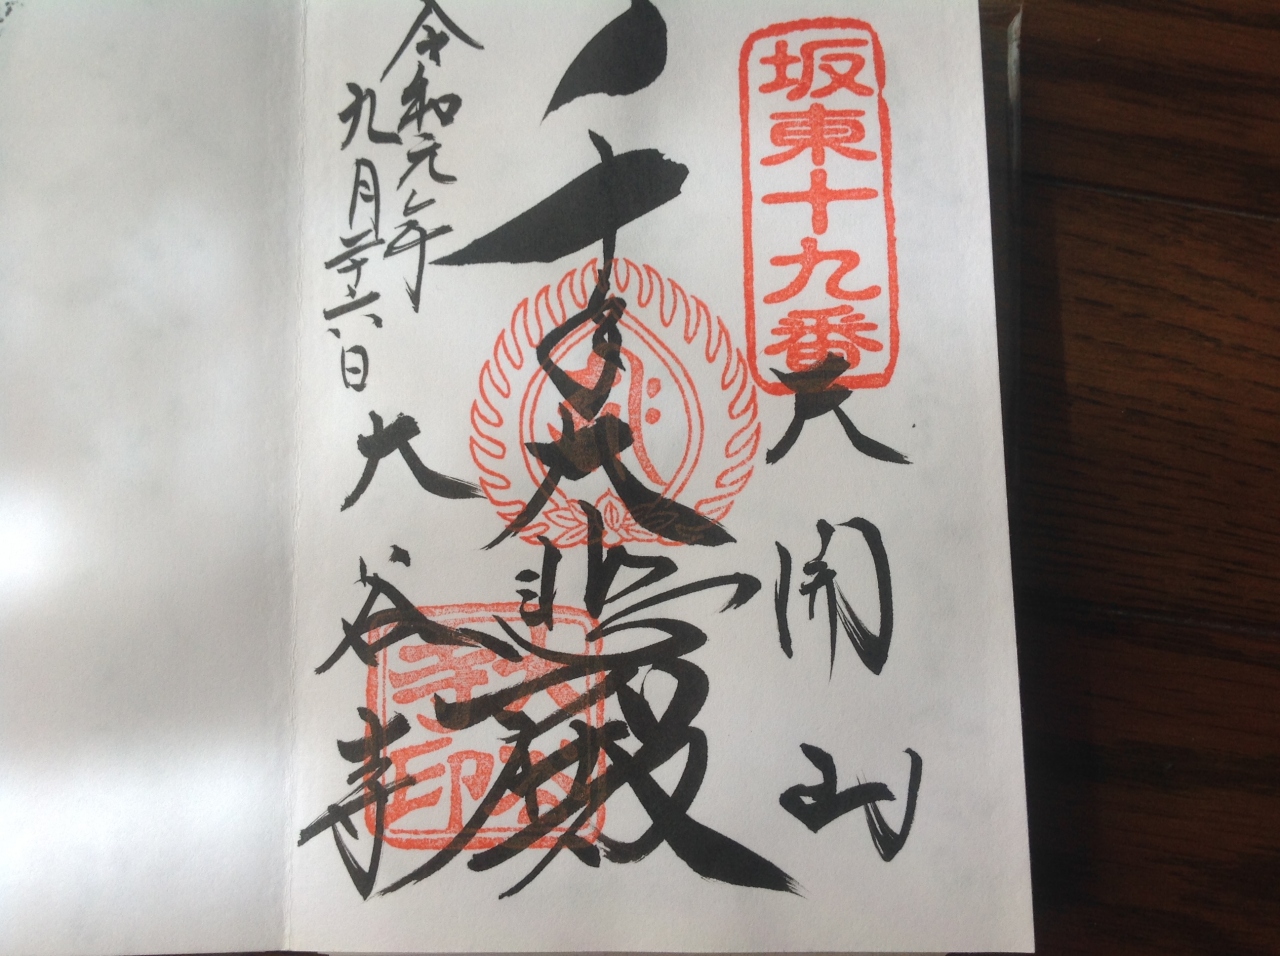 坂東十九番
天開山
千手大悲殿
令和元年
九月廿六日
大谷寺
大谷寺印